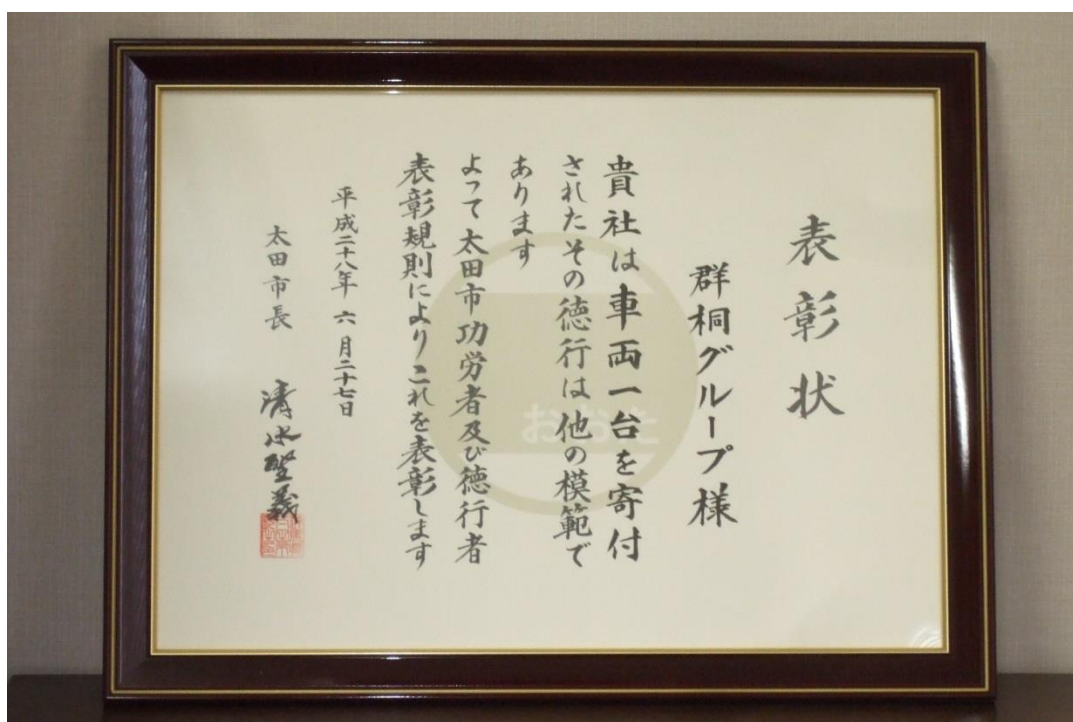 表彰状
群桐グループ様
貴社は車両一台を寄付
されたその徳行は他の模範で
あります
よって太田市功労者及び徳行者
表彰規則によりこれを表彰します
平成二十八年六月二十七日
太田市長 清水聖義
おおた